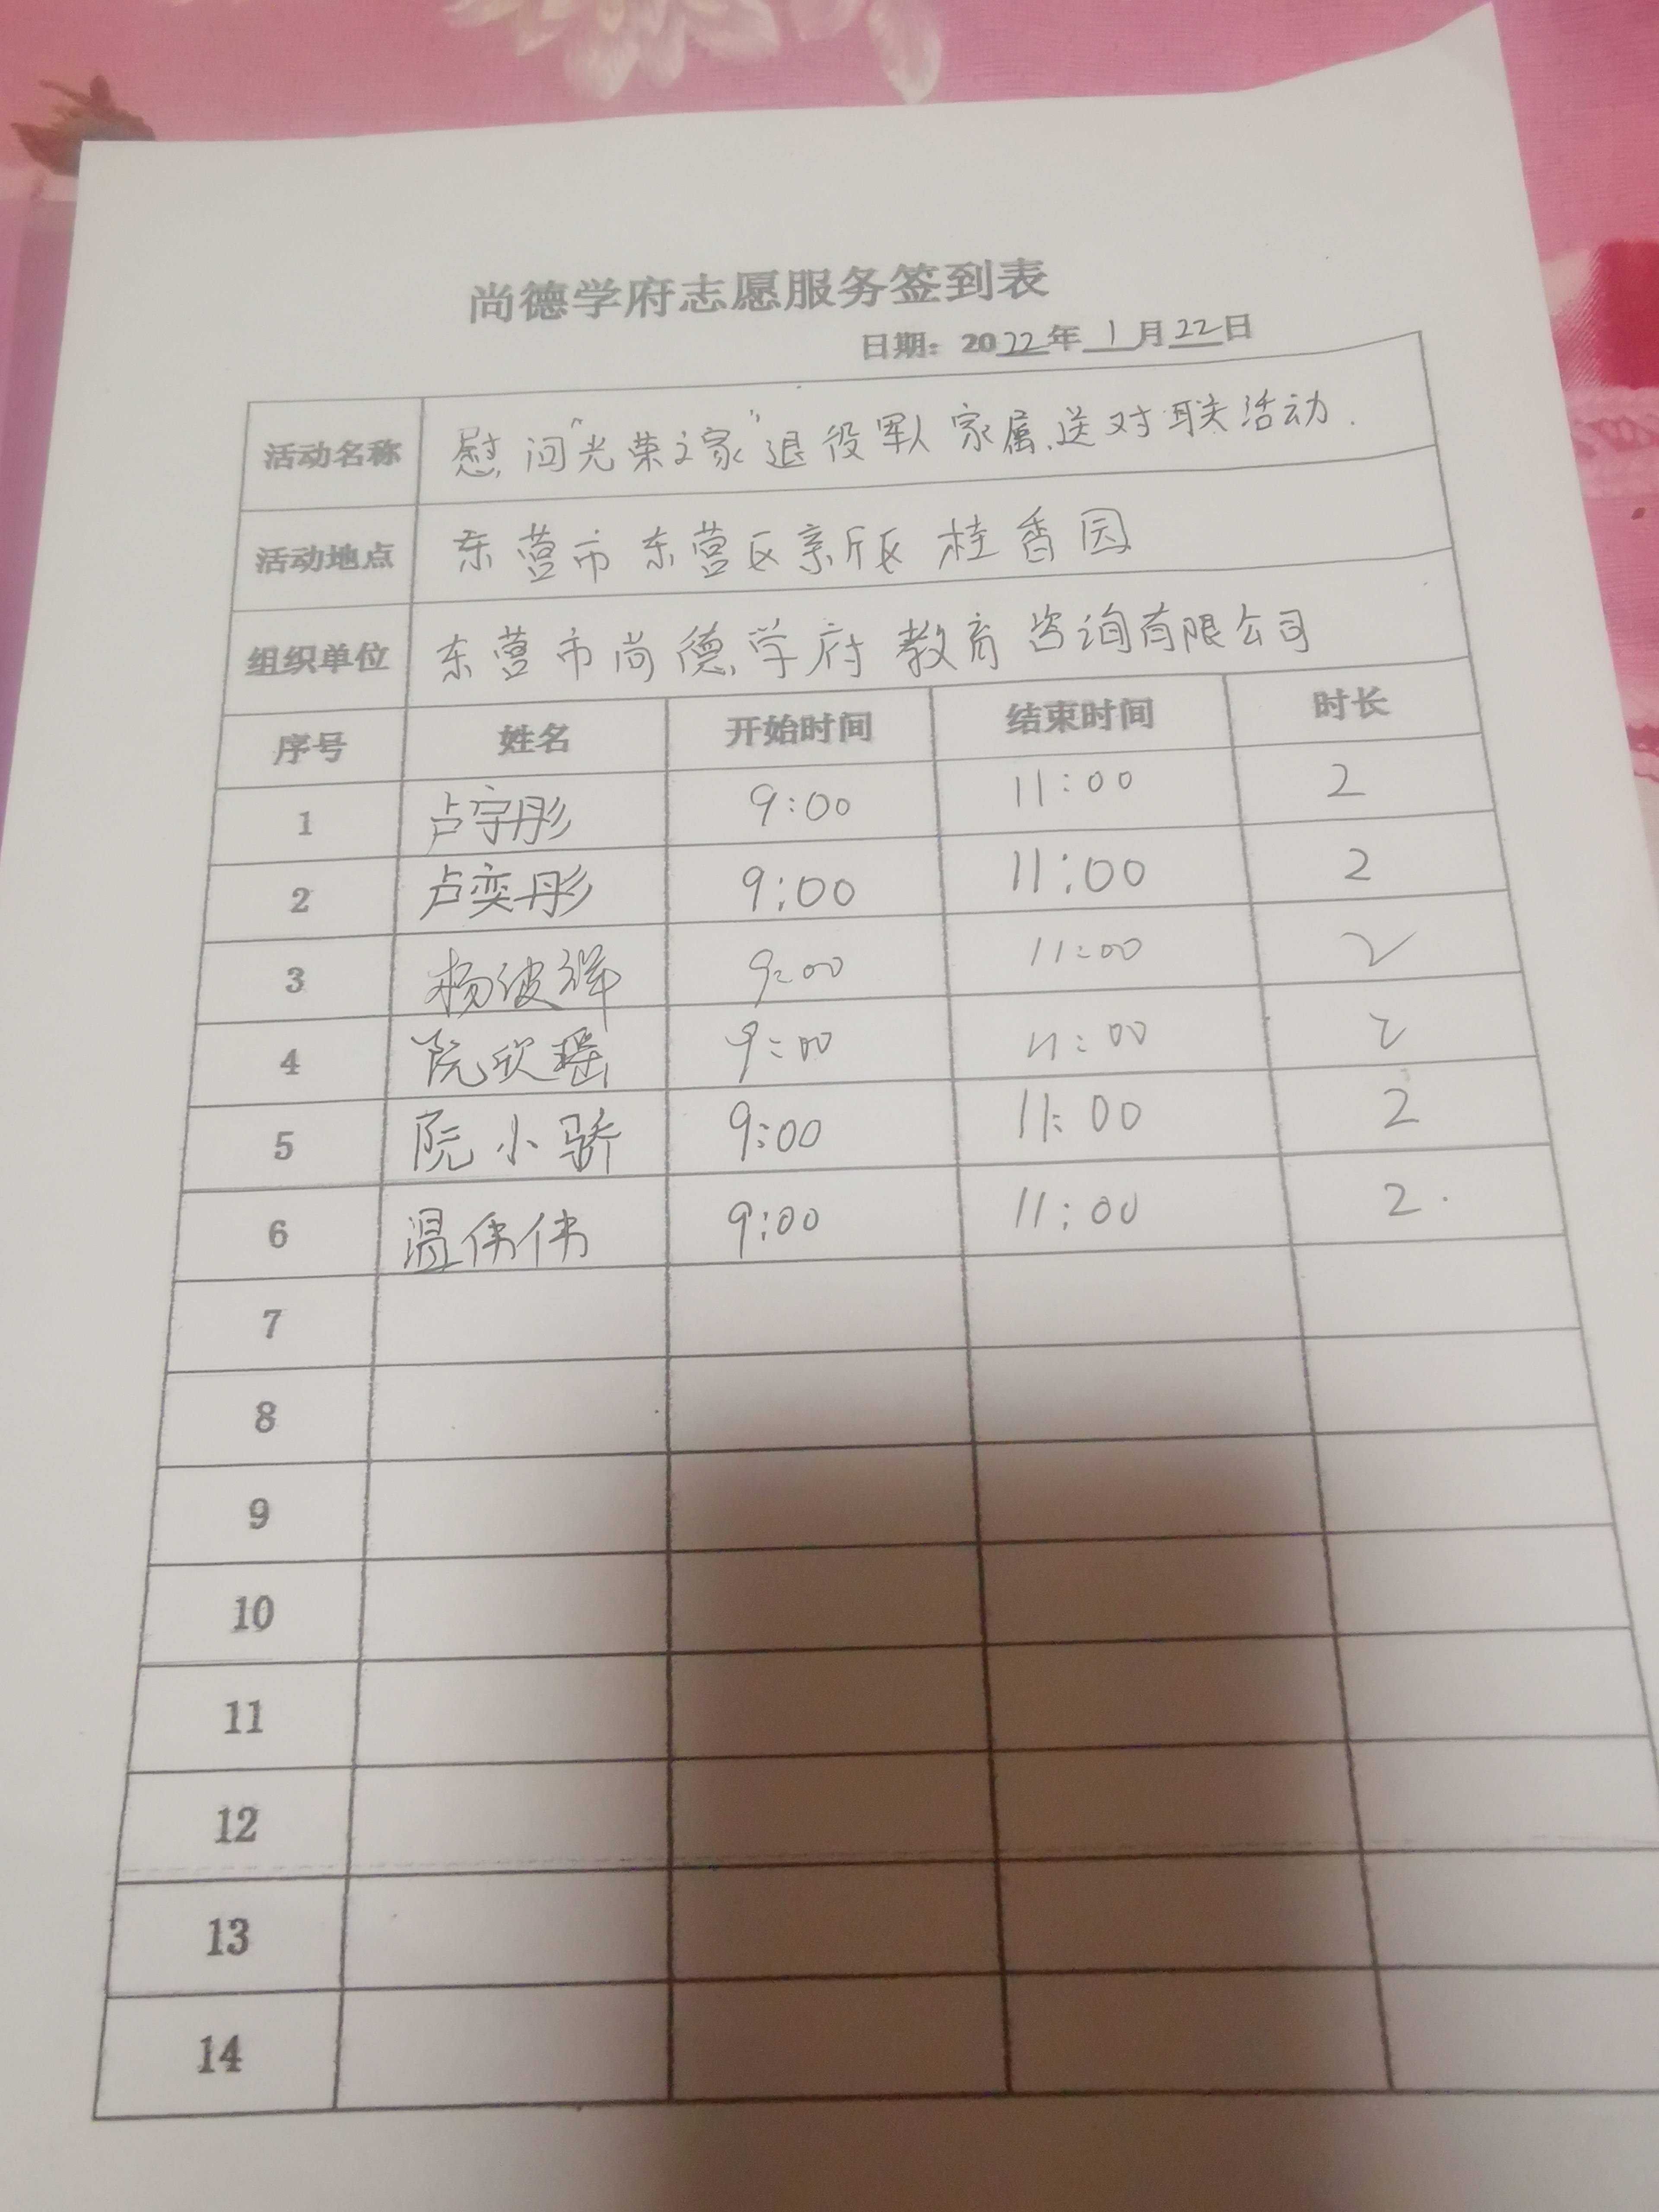 尚德学府志愿服务签到表
日期：2022年1月22日
活动名称 慰问“光荣之家”退役军人家属送对联活动.
活动地点 东营市东营区新区桂香园
组织单位 东营市尚德学府教育咨询有限公司
序号 姓名 开始时间 结束时间 时长
1 卢宇彤 9:00 11:00 2
2 卢奕彤 9:00 11:00 2
3 杨 9:00 11:00 2
4 阮欣瑶 9:00 11:00 2
5 阮小骄 9:00 11:00 2
6 温伟伟 9:00 11:00 2.
7
8
9
10
11
12
13
14